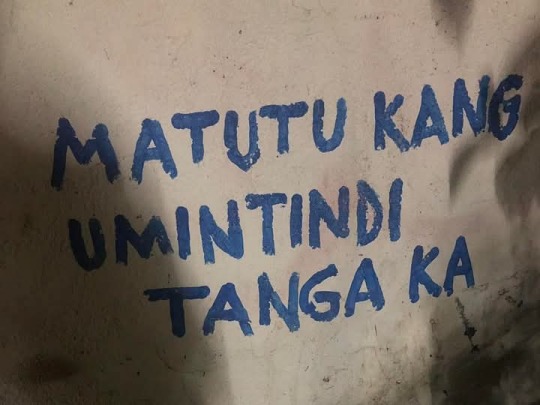 MATUTU KANG
UMINTINDI
TANGA KA